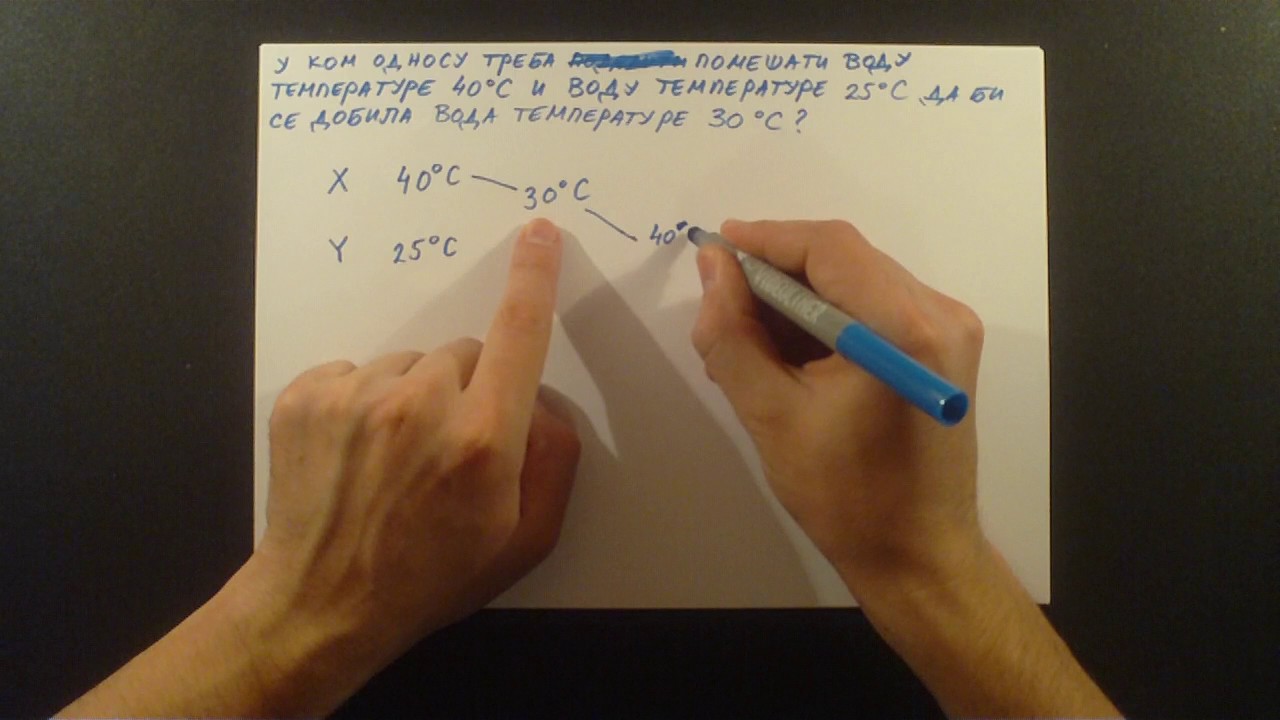 У КОМ ОДНОСУ ТРЕБА ПОМЕШАТИ ВОДУ
ТЕМПЕРАТУРЕ 40°C И ВОДУ ТЕМПЕРАТУРЕ 25°C ДА БИ
СЕ ДОБИЛА ВОДА ТЕМПЕРАТУРЕ 30°C?
X 40°C 30°C
40°
Y 25°C